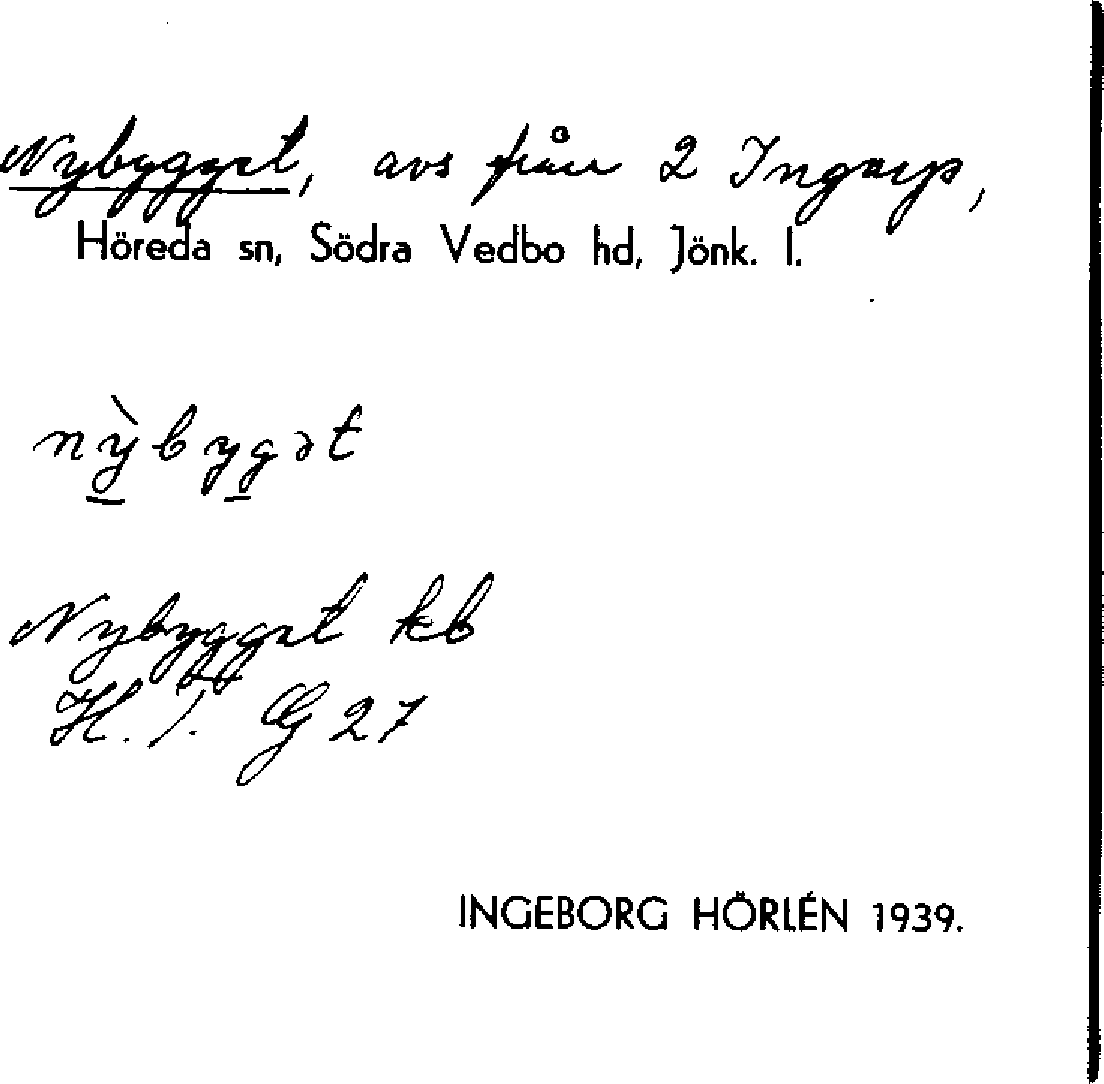 Nybygget, avs från 2 Ingarp,
Höreda sn, Södra Vedbo hd, Jönk. l.
nỳbygət
Nybygget kb
H. G 27
INGEBORG HÖRLÉN 1939.